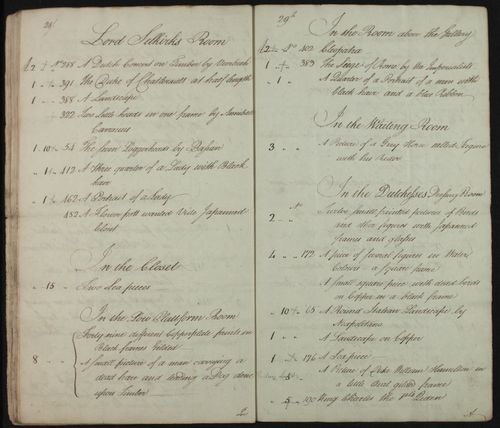 28t
Lord Selkirks Room
288 A Dutch Consort on Timber by
1 391 The Duke of Chattlerault at half length
1 388 A Landscape
322 Two Little heads in one frame by Annibal
Carracci
1 10 54 The four by Bassan
1 412 A three quarter of a Lady with Black
hair
1 462 A Portrait of a Lady
452 A Flower pott wanted Vide Japanned
Closet
In the Closet
15 Two Sea pieces
In the Low Plattform Room
Forty nine different Copperplate prints in
Black frames Gilded
8 A Small picture of a man carrying a
dead hare and a Dog done
upon Timber
2
29th
In the Room above the Gallery
2 No 402 Cleopatra
1 383 The Siege of by the Imperialists
1 A Quarter of a Portrait of a man with
black hair and a blue Ribbon
In the Waiting Room
3 A Picture of a Grey Horse called
with his Rider
In the Dutchesses Dressing Room
2 Twelve small painted pictures of Birds
and other figures with Japanned
frames and glasses
4 172 A piece of several figures in Water
Colours a square frame
A Small square piece with dead birds
on Copper in a black frame
10 65 A Round Italian Landscape by
Neapolitano
1 A Landscape on Copper
1 176 A Sea piece
5 A Picture of Duke William Hamilton in
a little Oval gilded frame
5 190 King Charles the Queen
A